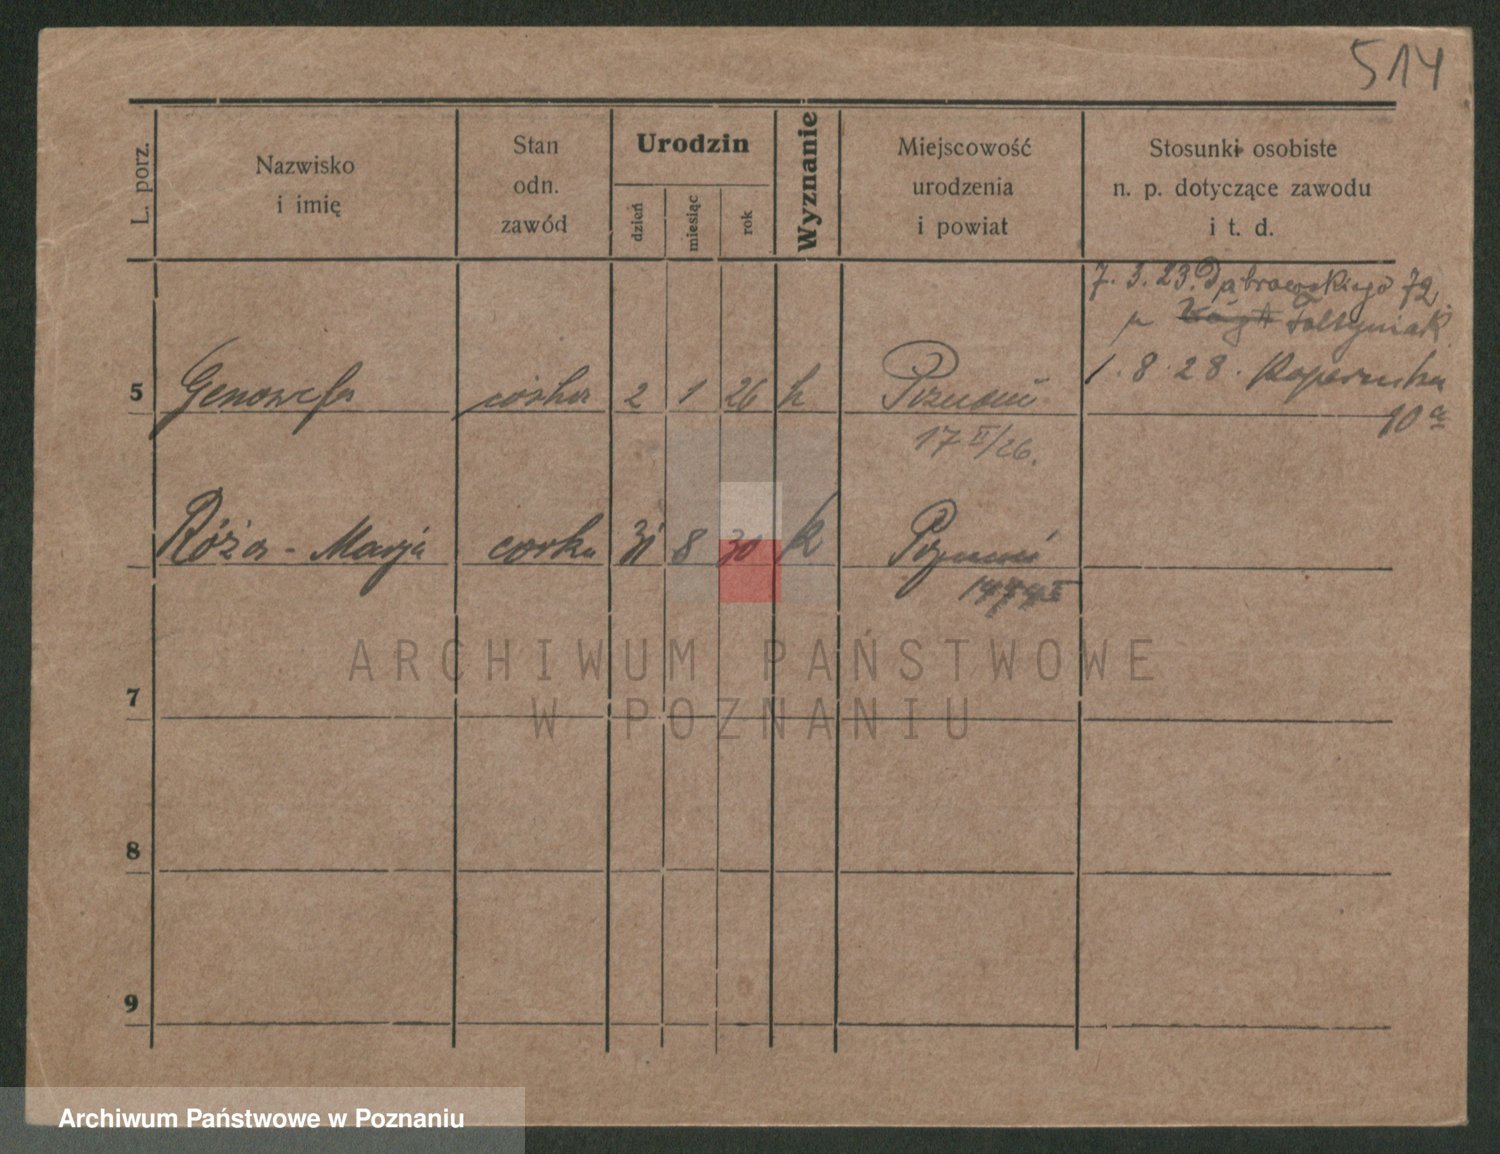 514
L. porz.
Nazwisko
i imię
Stan
odn.
zawód
Urodzin
dzień
miesiąc
rok
Wyznanie
Miejscowość
urodzenia
i powiat
Stosunki osobiste
n. p. dotyczące zawodu
i t. d.
7. 3. 23. Dąbrowskiego 72
1. 8. 28.
10 a
5 Genowefa córka 2 1 26 k Poznań
17 II/26.
Róża - Marja córka 31 8 30 k Poznań
7
8
9
ARCHIWUM PAŃSTWOWE
W POZNANIU
Archiwum Państwowe w Poznaniu